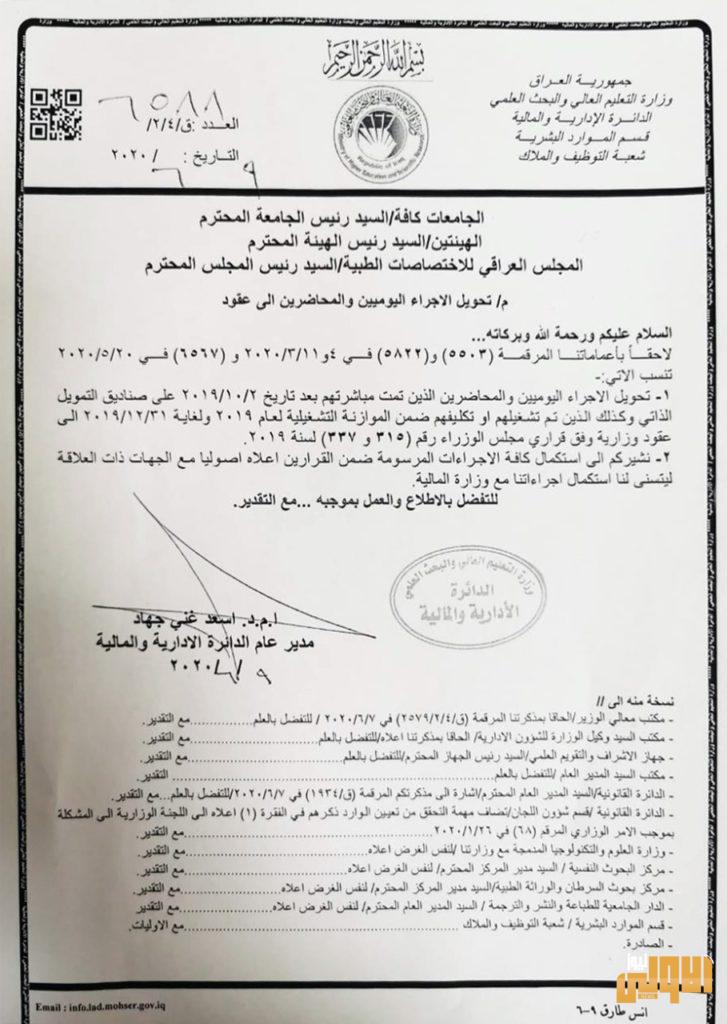 بسم الله الرحمن الرحيم
جمهورية العراق
وزارة التعليم العالي والبحث العلمي
الدائرة الإدارية والمالية
قسم الموارد البشرية
شعبة التوظيف والملاك
Republic of Iraq
العدد :ق/٢/٤/ ٦٥٨٨
التاريخ : ٩ / ٦ /٢٠٢٠
الجامعات كافة/السيد رئيس الجامعة المحترم
الهيئتين/السيد رئيس الهيئة المحترم
المجلس العراقي للاختصاصات الطبية/السيد رئيس المجلس المحترم
م/ تحويل الاجراء اليوميين والمحاضرين الى عقود
السلام عليكم ورحمة الله وبركاته...
لاحقاً بأعماماتنا المرقمة (٥٥٠٣) و(٥٨٢٢) في ٤و٢٠٢٠/٣/١١ و (٦٥٦٧) في ٢٠٢٠/٥/٢٠
تنسب الاتي:-
١- تحويل الاجراء اليوميين والمحاضرين الذين تمت مباشرتهم بعد تاريخ ٢٠١٩/١٠/٢ على صناديق التمويل
الذاتي وكذلك الذين تم تشغيلهم او تكليفهم ضمن الموازنة التشغيلية لعام ٢٠١٩ ولغاية ٢٠١٩/١٢/٣١ الى
عقود وزارية وفق قراري مجلس الوزراء رقم (٣١٥ و ٣٣٧) لسنة ٢٠١٩.
٢- نشيركم الى استكمال كافة الاجراءات المرسومة ضمن القرارين اعلاه اصوليا مع الجهات ذات العلاقة
ليتسنى لنا استكمال اجراءاتنا مع وزارة المالية.
للتفضل بالاطلاع والعمل بموجبه ...مع التقدير.
وزارة التعليم العالي والبحث العلمي
الدائرة
الأدارية والمالية
ا.م.د. اسعد غني جهاد
مدير عام الدائرة الادارية والمالية
٩ /٦/ ٢٠٢٠
نسخة منه الى //
- مكتب معالي الوزير/الحاقا بمذكرتنا المرقمة (ق/٢٥٧٩/٢/٤) في ٢٠٢٠/٦/٧ / للتفضل بالعلم..........مع التقدير.
- مكتب السيد وكيل الوزارة للشؤون الادارية/ الحاقا بمذكرتنا اعلاه/للتفضل بالعلم..........مع التقدير.
- جهاز الاشراف والتقويم العلمي/السيد رئيس الجهاز المحترم/للتفضل بالعلم..........مع التقدير.
- مكتب السيد المدير العام /للتفضل بالعلم.......... التقدير.
- الدائرة القانونية/السيد المدير العام المحترم/اشارة الى مذكرتكم المرقمة (ق/١٩٣٤) في ٢٠٢٠/٦/٧/للتفضل بالعلم...مع التقدير.
- الدائرة القانونية /قسم شؤون اللجان/تضاف مهمة التحقق من تعيين الوارد ذكرهم في الفقرة (١) اعلاه الى اللجنة الوزارية الى المشكلة
بموجب الامر الوزاري المرقم (٦٨) في ٢٠٢٠/١/٢٦..........مع التقدير.
- وزارة العلوم والتكنولوجيا المدمجة مع وزارتنا /لنفس الغرض اعلاه..........مع التقدير.
- مركز البحوث النفسية / السيد مدير المركز المحترم/ لنفس الغرض اعلاه..........مع التقدير.
- مركز بحوث السرطان والوراثة الطبية/السيد مدير المركز المحترم/ لنفس الغرض اعلاه..........مع التقدير.
- الدار الجامعية للطباعة والنشر والترجمة / السيد المدير العام المحترم/ لنفس الغرض اعلاه..........مع التقدير
- قسم الموارد البشرية / شعبة التوظيف والملاك..........مع الاوليات.
- الصادرة.
Email : info.lad.mohser.gov.iq
انس طارق ٩-٦
الاولى نيوز
NEWS